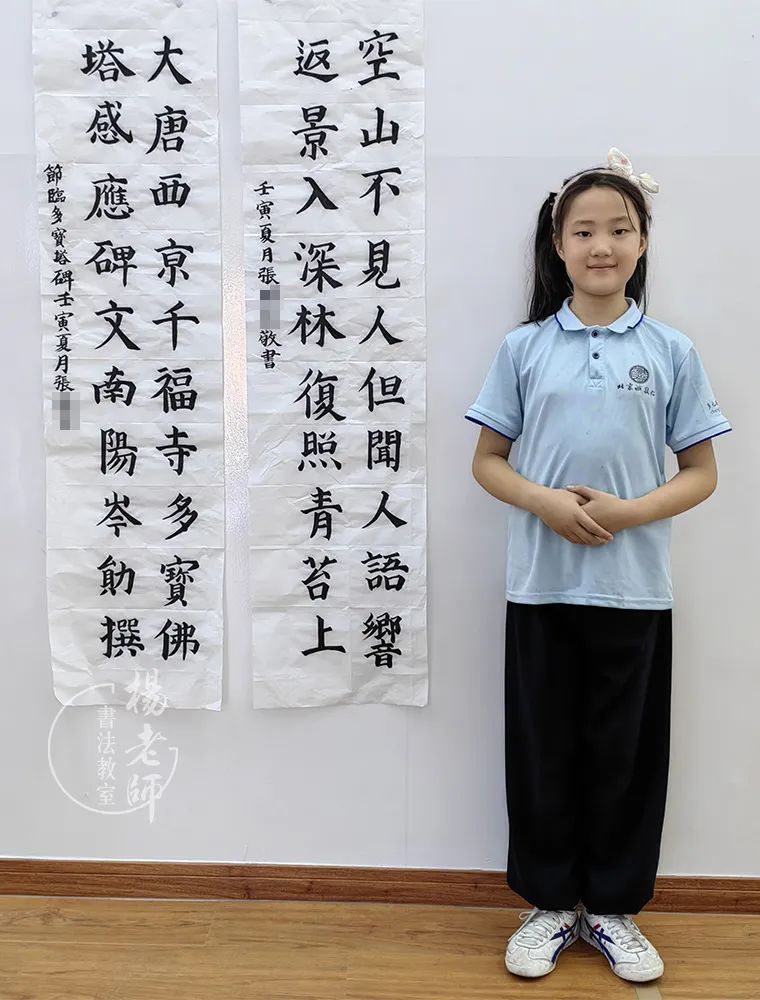 空山不見人但聞人語響
返景入深林復照青苔上
壬寅夏月張
敬書
大唐西京千福寺多寶佛
塔感應碑文南陽岑勛撰
節臨多寶塔碑壬寅夏月張
楊老師
書法教室